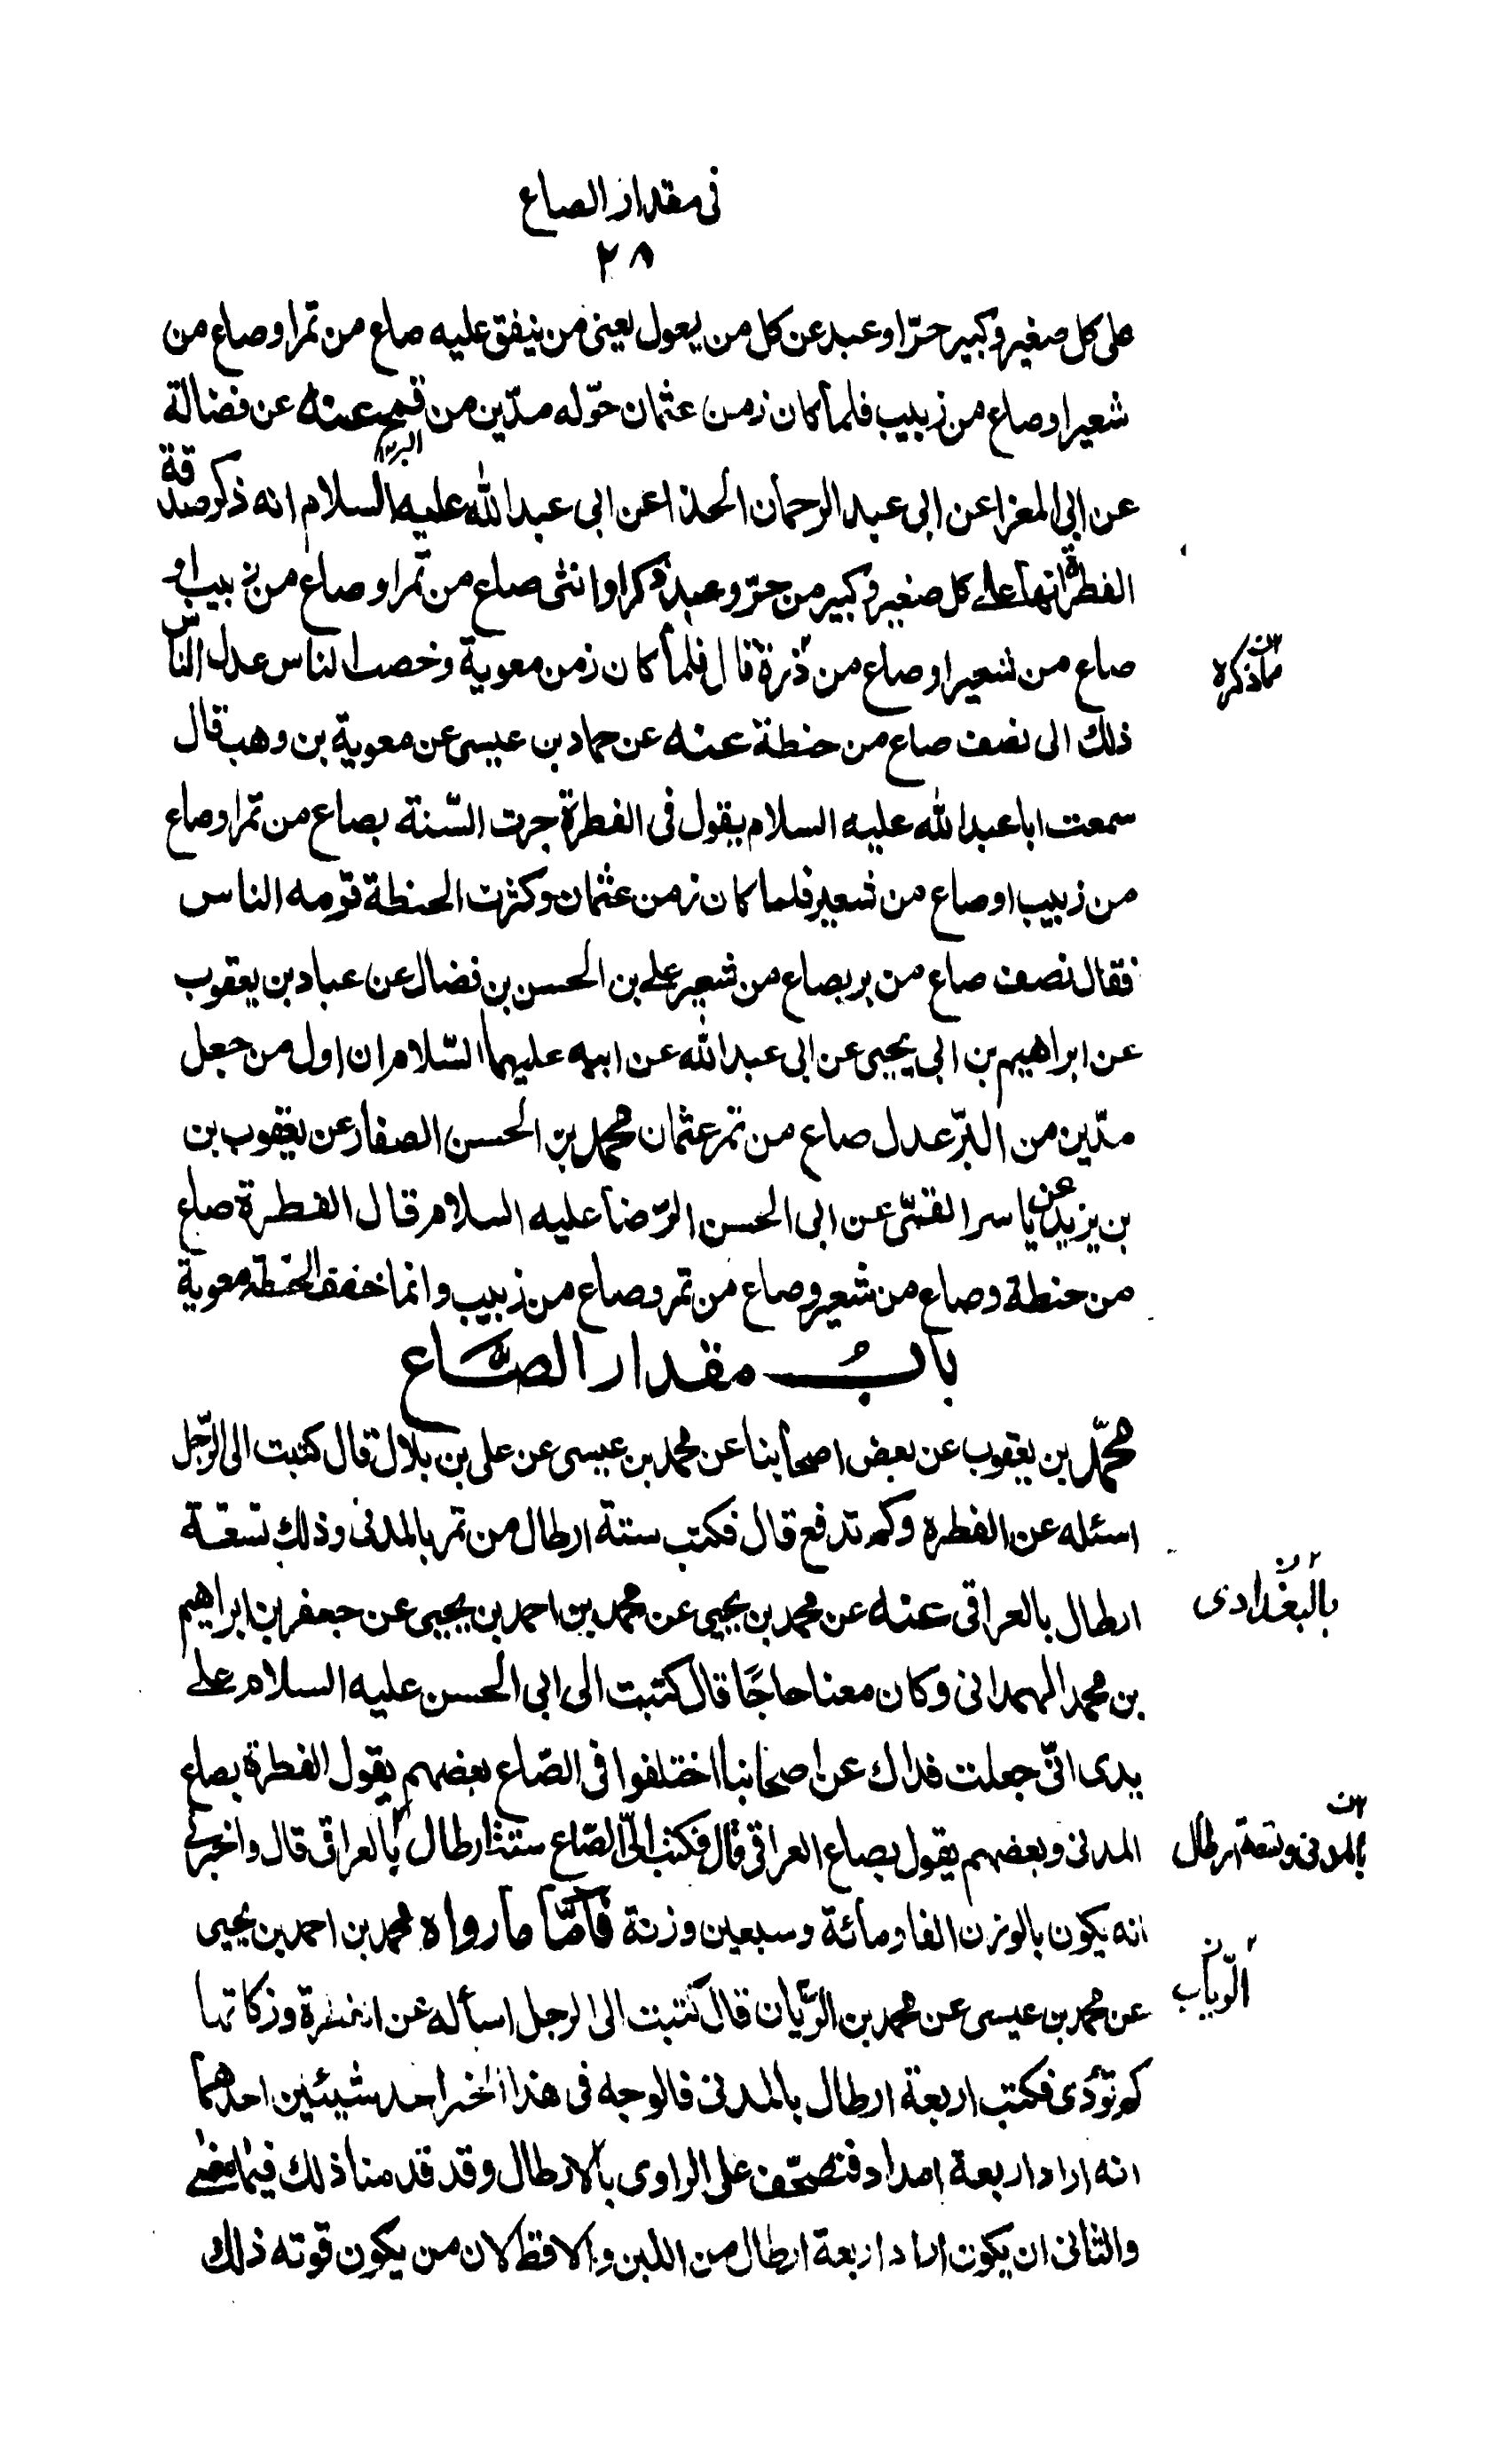 فى مقدار الصاع
٢٨
على كل صغير وكبير حرّ او عبد عن كل من يعول يعنى من ينفق عليه صاع من تمر او صاع من
شعير او صاع من زبيب فلما كان زمن عثمان حوّله مدّين من قمح عنه عن فضالة
البر
عن ابى المغرا عن ابى عبد الرحمان الحذا عن ابى عبد الله عليه السلام انه ذكر صدقة
الفطرة انها على كل صغير وكبير من حرّ وعبد ذكر او انثى صاع من تمر او صاع من زبيب او
صاع من شعير او صاع من ذرة قال فلما كان زمن معوية وخصب الناس عدل الناس
ماذكره
ذلك الى نصف صاع من حنطة عنه عن حماد بن عيسى عن معوية بن وهب قال
سمعت ابا عبد الله عليه السلام يقول فى الفطرة جرت السّنة بصاع من تمر او صاع
من زبيب او صاع من شعير فلما كان زمن عثمان وكثرت الحنطة قومه الناس
فقال نصف صاع من بر بصاع من شعير على بن الحسن بن فضال عن عباد بن يعقوب
عن ابراهيم بن ابى يحيى عن ابى عبد الله عن ابيه عليهما السّلام ان اول من جعل
مدّين من البرّ عدل صاع من تمر عثمان محمد بن الحسن الصفار عن يعقوب بن
بن يزيد عن ياسر القمّى عن ابى الحسن الرّضا عليه السلام قال الفطرة صاع
من حنطة وصاع من شعير وصاع من تمر وصاع من زبيب وانما خفف الحنطة معوية
باب مقدار الصّاع
محمّد بن يعقوب عن بعض اصحابنا عن محمد بن عيسى عن على بن بلال قال كتبت الى الرّجل
اسئله عن الفطره وكم تدفع قال فكتب ستة ارطال من تمر بالمدنى وذلك تسعة
ارطال بالعراقى عنه عن محمد بن يحيى عن محمد بن احمد بن يحيى عن جعفر بن ابراهيم
بالبغدادى
بن محمد الهمدانى وكان معنا حاجّا قال كتبت الى ابى الحسن عليه السلام على
يدى ابى جعلت فداك عن اصحابنا اختلفوا فى الصّاع بعضهم يقول الفطرة بصاع
المدنى وبعضهم يقول بصاع العراقى قال فكتب الىّ الصّاع ستة ارطال بالعراقى قال واخبرنى
بالمدنى وتسعة ارطال
انه يكون بالوزن الفا ومائة وسبعين وزنة فامّا ما رواه محمد بن احمد بن يحيى
عن محمد بن عيسى عن محمد بن الرّيان قال كتبت الى الرجل اسأله عن الفطرة وزكاتها
كم تؤدى فكتب اربعة ارطال بالمدنى فالوجه فى هذا الخبر احد شيئين احدهما
انه اراد اربعة امداد فتصحّف على الراوى بالارطال وقد قدمنا ذلك فيما مضى
والثانى ان يكون اراد اربعة ارطال من اللبن والاقط لان من يكون قوته ذلك